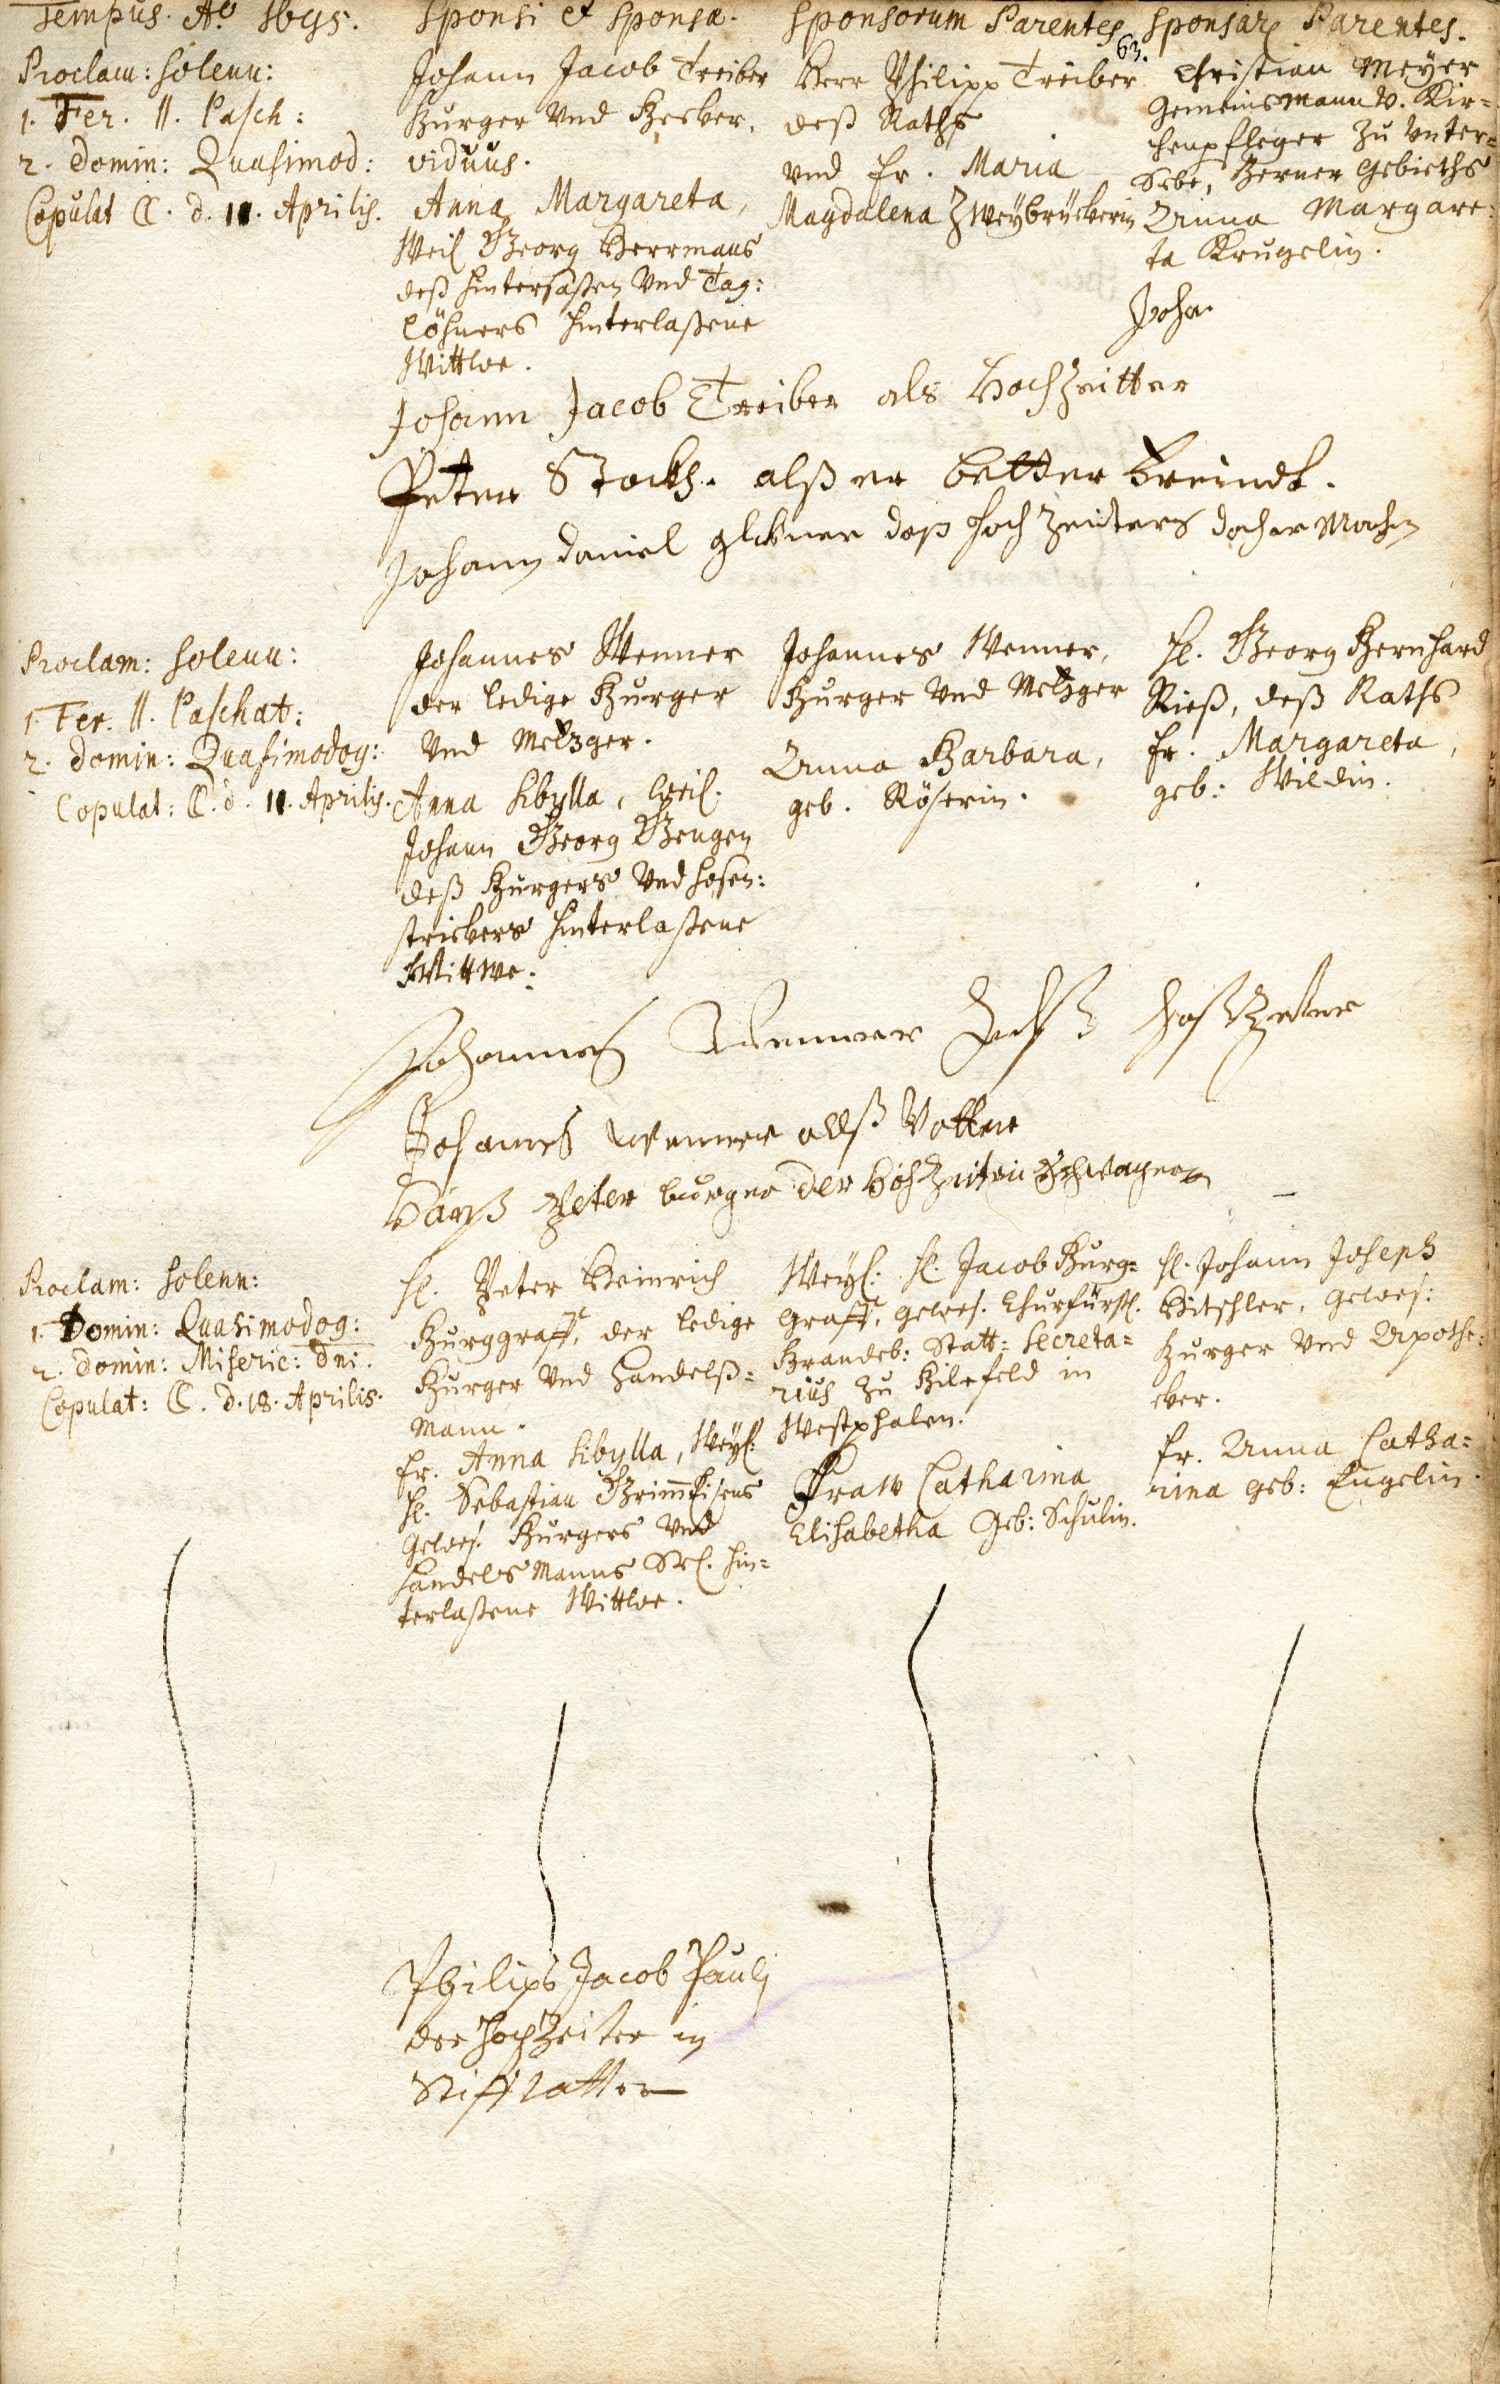 Tempus. Aō. 1695.
Sponsi et Sponsa.
Sponsorum Parentes.
Sponsar. Parentes.
63.
Proclam: solenn:
1. Fer. II. Pasch:
2. Domin: Quasimod:
Copulat ☾. d. 11. Aprilis.
Johann Jacob Treiber
Burger Vnd Becker,
viduus.
Anna Margareta,
Weil. Georg Herrmans
deß hintersaßen Vnd Tag:
löhners hinterlaßene
Wittwe.
Herr Philipp Treiber
deß Raths
vnd fr. Maria
Magdalena Zweybrückerin
Christian Meyer
Gemeinsmann v. Kir=
chenpfleger zu Vnter=
Berner Gebieths
Anna Margare:
ta Krugelin.
Joha.
Johann Jacob Treiber als Hochzeitter
Peter Stockh. alß er better
Johann Daniel deß hochzeiters dochermachn
Proclam: solenn:
1. Fer. II. Paschat:
2. Domin: Quasimodog:
Copulat: ☾. d. 11. Aprilis.
Johannes Wenner
der ledige Burger
Vnd Metzger.
Anna Sibylla, weil.
Johann Georg Gengen
deß Burgers Vnd hosen:
strickers hinterlaßene
Wittwe.
Johannes Wenner,
Burger Vnd Metzger
Anna Barbara,
geb. Röserin.
H. Georg Bernhard
Rieß, deß Raths
fr. Margareta,
geb: Wildin.
Johannes Wenner hochzeiter
Johannes wenner alß Vatter
Hanß Peter burger der Hochzeiterin Schwager
Proclam: solenn:
1. Domin: Quasimodog:
2. Domin: Miseric: Dni.
Copulat: ☾. d. 18. Aprilis.
H. Peter Heinrich
Burggraff, der ledige
Burger Vnd Handelß=
mann.
fr. Anna Sibylla, Weyl.
H. Sebastian Grimmeisens
gewes. Burgers Vnd
handelsmanns Sel. hin=
terlaßene Wittwe.
Weyl: H. Jacob Burg=
graff, gewes. Churfürstl.
Brandeb: Statt= Secreta=
rius zu Bilefeld in
Westphalen.
Fraw Catharina
Elisabetha Geb: Schulin.
H. Johann Joseph
Hitschler, gewes:
Burger Vnd Apothe:
cker.
fr. Anna Catha=
rina geb: Engelin.
Philips Jacob Pauli
der hochzeiter in
Stiffvatter